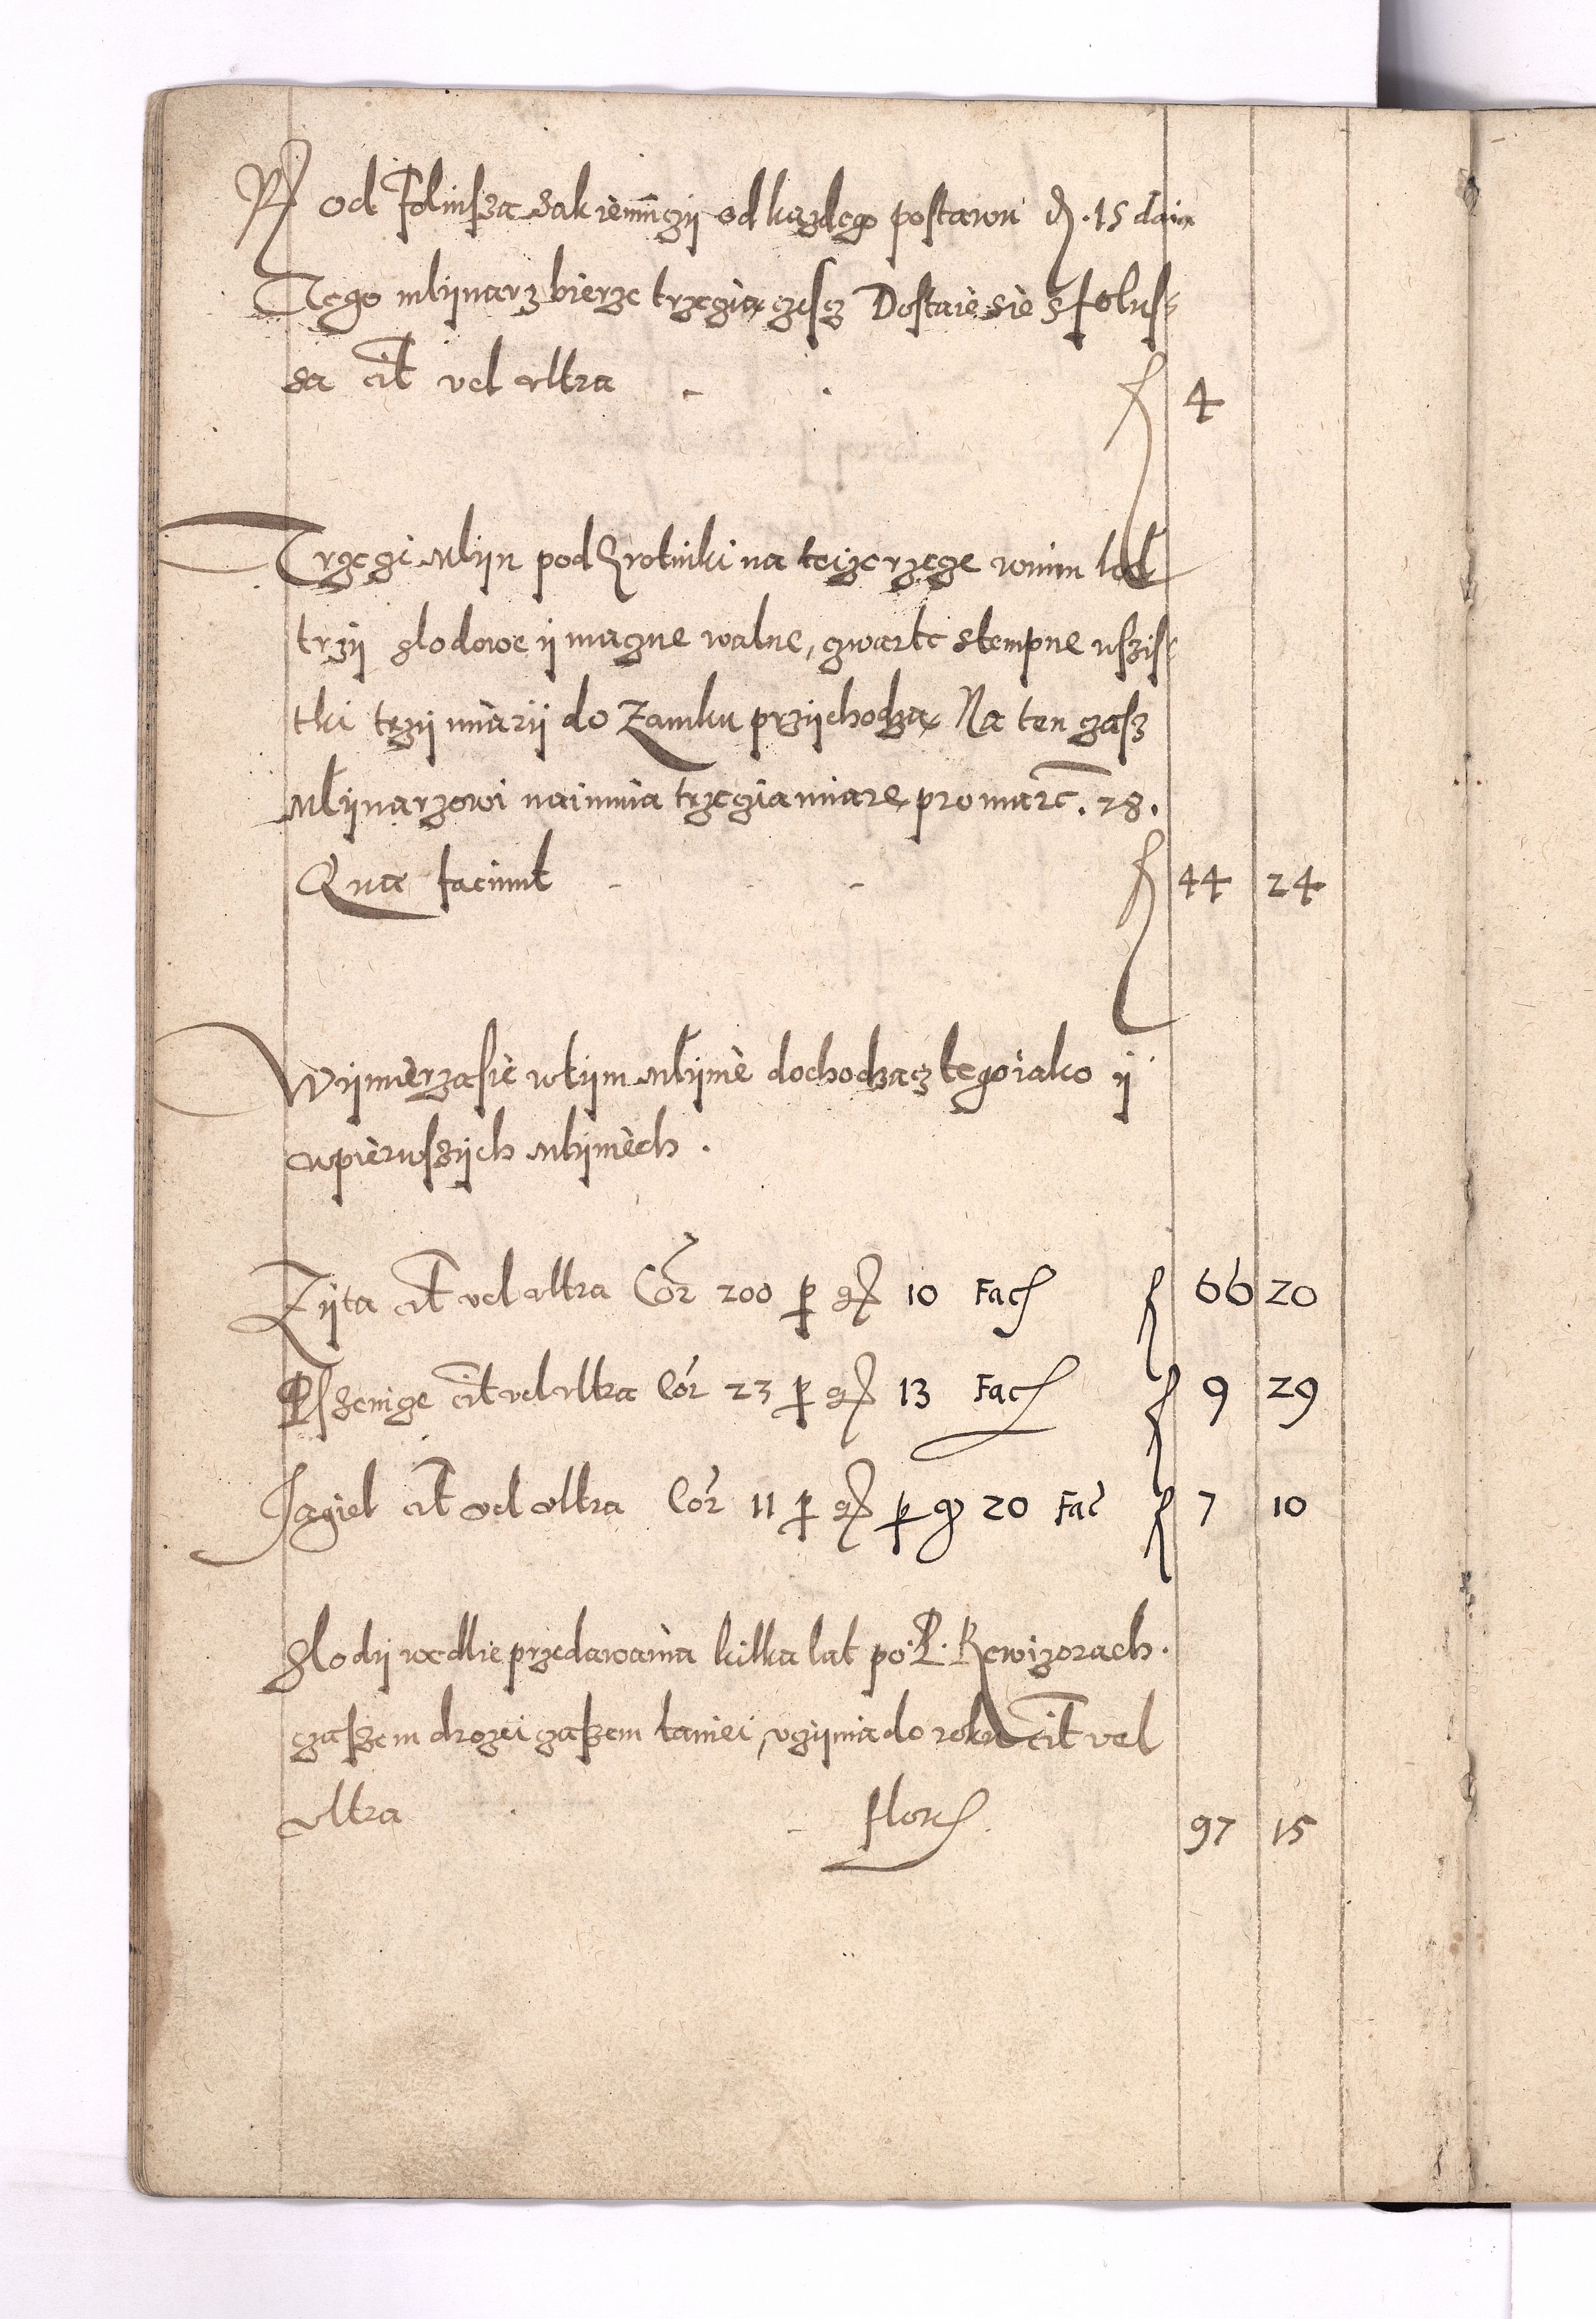 Rz od Foliusza Sakiemniczy od kazdego postawu d. 15 daią
Tego mlijnarz bierze trzeczią czesz Dostaie sie s Folus=
sa cit vel ultra - - f 4
Trzeczi mlijn pod Zrotniki na teize rzecze w nim kol
trzij slodowe ij mączne walne, czwarte stempne wszis=
tki trzij miarij do Zamku przijchodzą Na ten czasz
mlijnarzowi naimuia trzeczia miare pro marc. 28.
Quae faciunt - - - f 44 24
Wijmierza sie w tijm mlijnie dochodzacz tego iako ij
w pierwszijch mlijniech .
Zijta cit vel ultra Cor 200 p gr 10 Fac f 66 20
Pszenice cit vel ultra Cor 23 p gr 13 Fac f 9 29
Jagiel cit vel ultra Cor 11 p gr p gr 20 Fac f 7 10
Slodij wedlie przedawania kilka lat po P. Rewizorach.
czaszem drozei czaszem taniei, uczijnia do roku cit vel
ultra - flor. 97 15